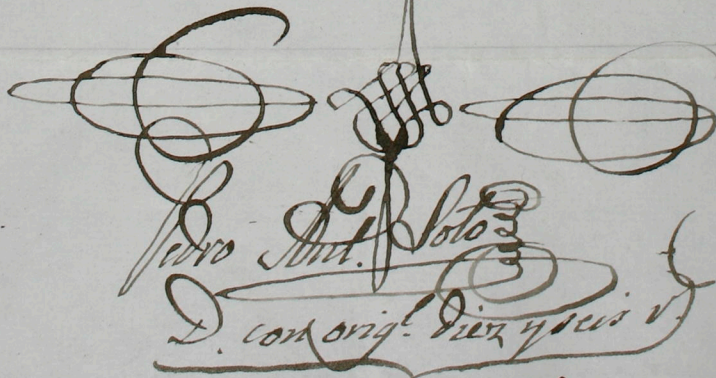 Pedro Ant. Soto
D. con orig.l diez y seis r.